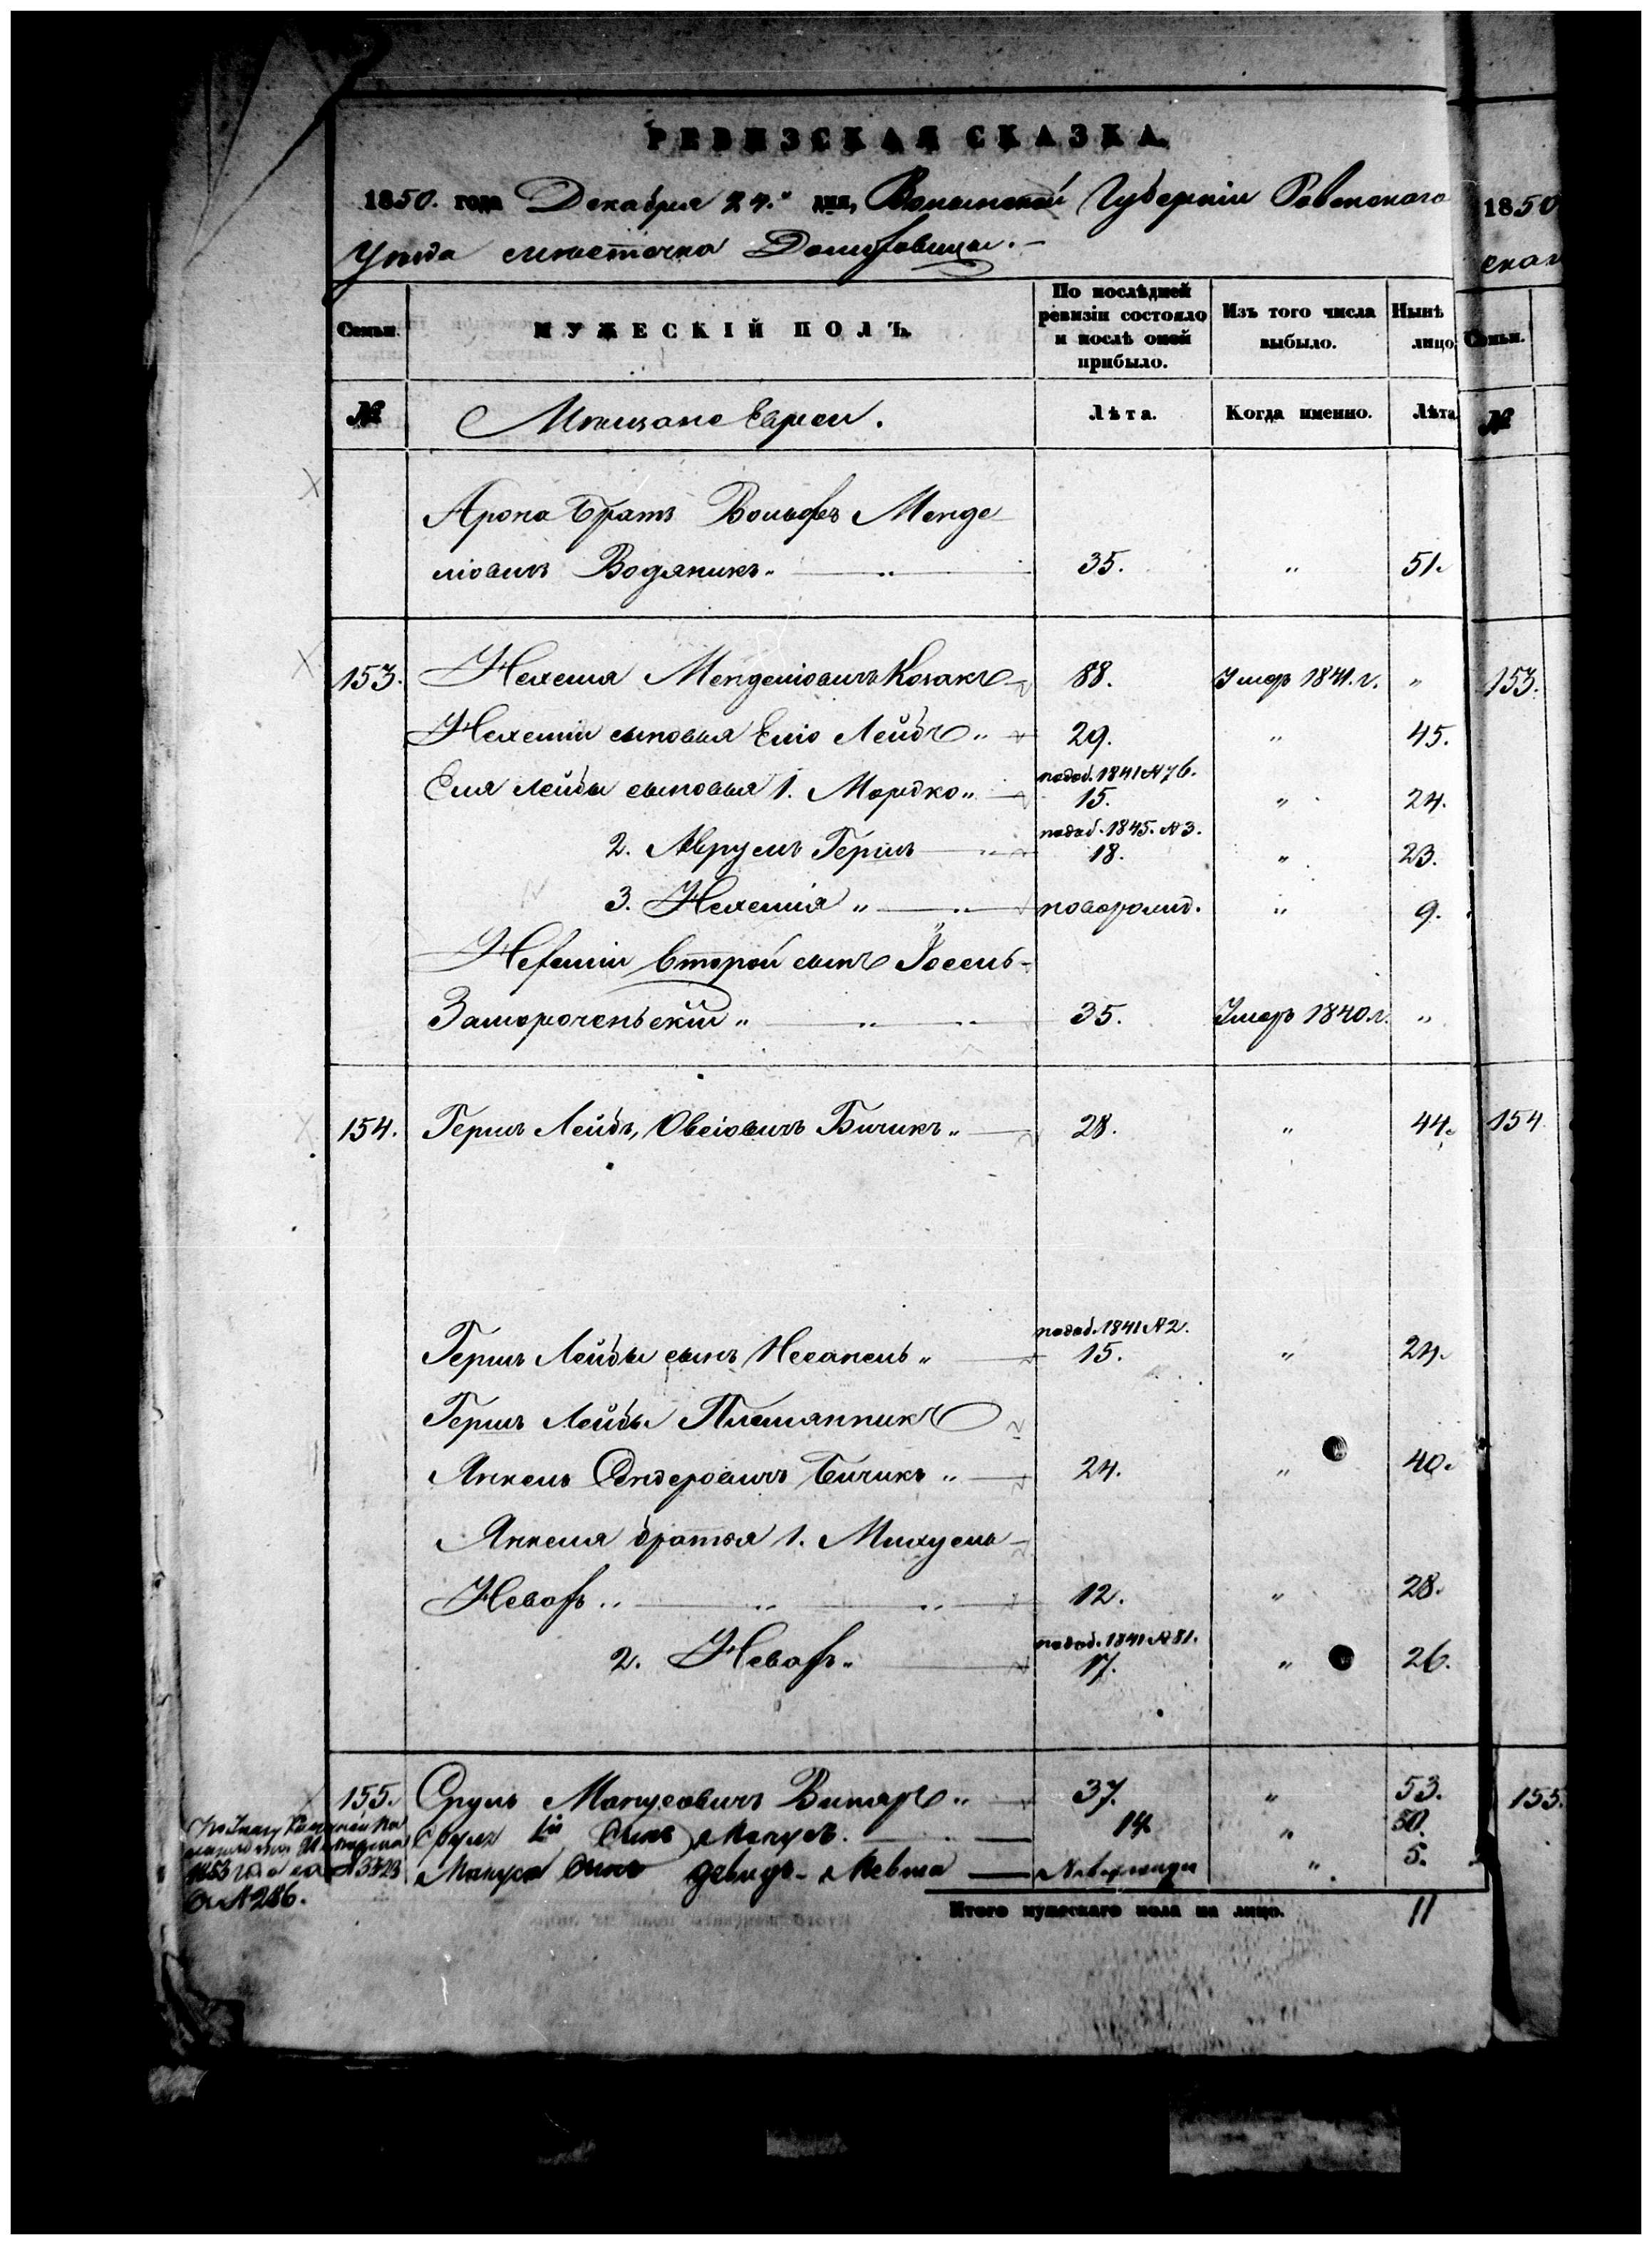 РЕВИЗСКАЯ СКАЗКА.
1850. года Декабря 24.го дня, Волынской Губерніи Ровенского 1850
Уѣзда мѣстечка Домбровицы.
Семьи. МУЖЕСКІЙ ПОЛЪ. По послѣдней ревизіи состояло и послѣ оной прибыло. Изъ того числа выбыло. Нынѣ на лицо Семьи.
№ Мѣщане Евреи. Лѣта. Когда именно. Лѣта №
Арона братъ Вольфъ Менде
лювичъ Водяникъ „ 35. „ 51.
153. Нехемія Менделіовичъ Козакъ 88. Умеръ 1841. г. „ 153.
Нехеміи сыновья Еліо Лейбъ „ 29. „ 45.
Еля Лейбы сыновья 1. Мордко „ 15. „ 24.
1841 №76.
2. Аврумъ Гершъ 18. „ 23.
1845. №3.
3. Нехемія „ новорожд. „ 9.
Нехеміи второй сынъ Іосель
Замороченьскій „ 35. Умеръ 1840 г. „
154. Гершъ Лейбъ, Овсіовичъ Бичикъ „ 28. „ 44. 154
1841 №2.
Гершъ Лейбы сынъ Несанель „ 15. „ 24.
Гершъ Лейбы Племянникъ
Янкель Сендеровичъ Бичикъ „ 24. „ 40.
Янкеля братья 1. Михуель
Невахъ „ 12. „ 28.
1841 №81.
2. Невахъ „ 17. „ 26.
155. Сруль Манусовичъ Винаръ „ 37. „ 53. 155.
Сруля Сынъ Манусъ. 14 „ 30.
Мануса Сынъ Девидъ-Левта Новорожден „ 5.
1853 года за №3723
№286.
Итого мужескаго пола на лицо. 11